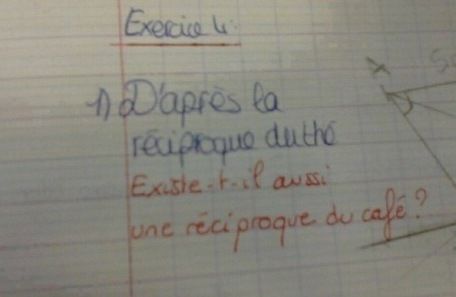 Exercice 4:
1) D'après la
réciproque du thé
Existe-t-il aussi
une réciproque du café?